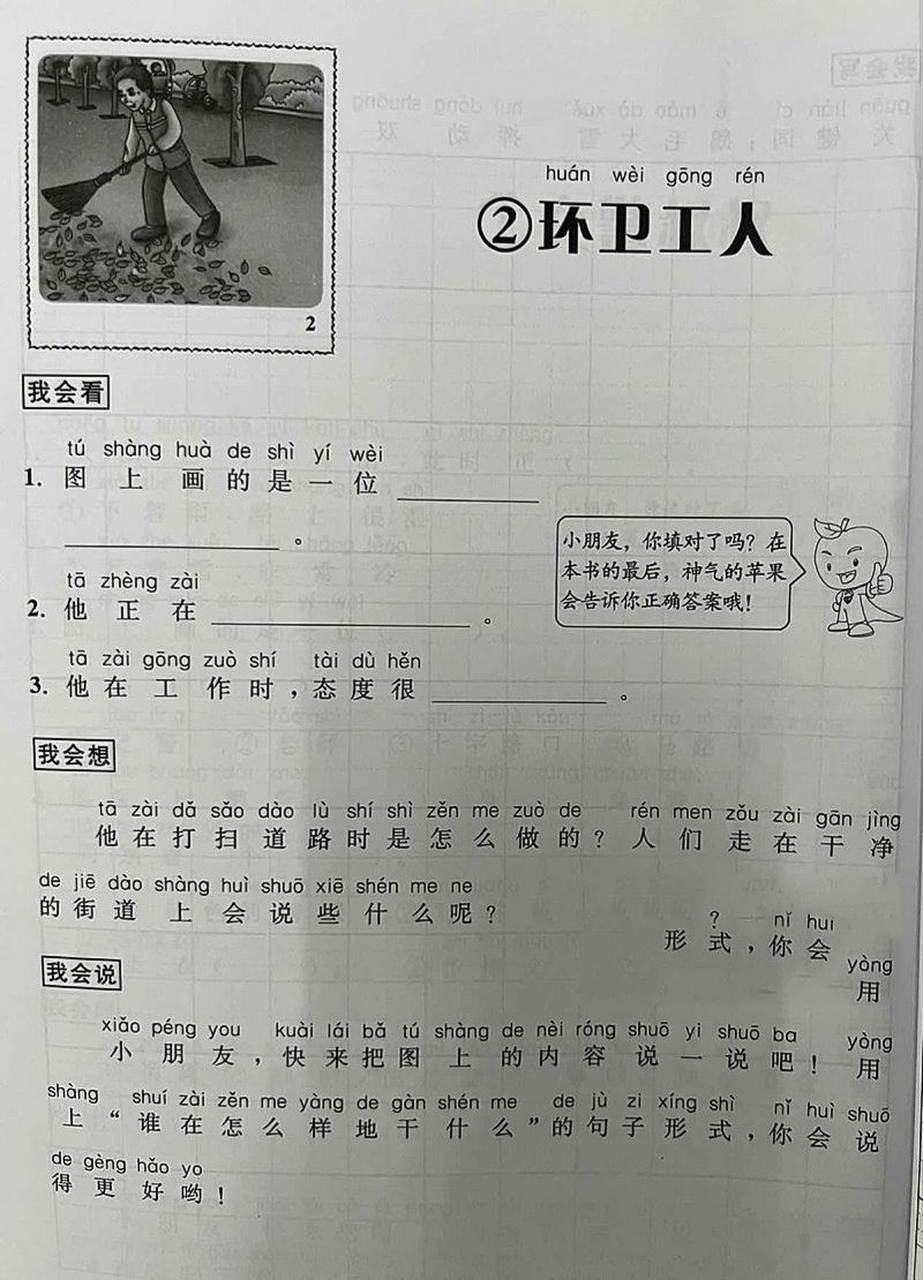 2
huán wèi gōng rén
②环卫工人
我会看
tú shàng huà de shì yí wèi
1. 图上画的是一位
。
tā zhèng zài
2. 他正在 。
小朋友，你填对了吗？在
本书的最后，神气的苹果
会告诉你正确答案哦！
tā zài gōng zuò shí tài dù hěn
3. 他在工作时，态度很 。
我会想
tā zài dǎ sǎo dào lù shí shì zěn me zuò de rén men zǒu zài gān jìng
他在打扫道路时是怎么做的？人们走在干净
de jiē dào shàng huì shuō xiē shén me ne
的街道上会说些什么呢？
? nǐ hui
形式，你会
yòng
用
我会说
xiǎo péng you kuài lái bǎ tú shàng de nèi róng shuō yi shuō ba yòng
小朋友，快来把图上的内容说一说吧！用
shàng shuí zài zěn me yàng de gàn shén me de jù zi xíng shì nǐ huì shuō
上“谁在怎么样地干什么”的句子形式，你会说
de gèng hǎo yo
得更好哟！